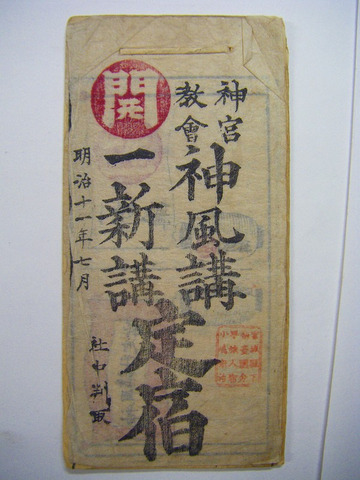 神宮
教會
神風講
一新講
定宿
開
明治十一年七月
社中判取